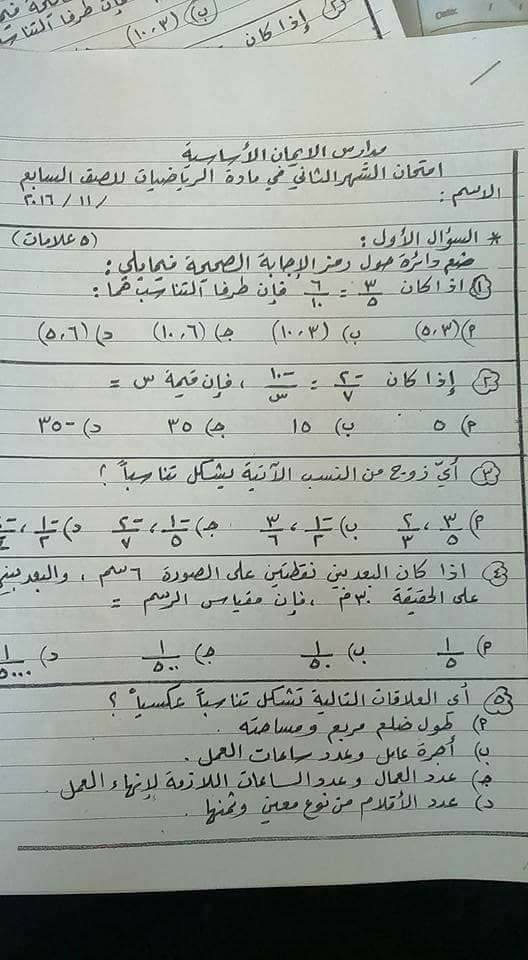 ب) (١٠،٣)
إذا كان
فإن طرفا التناسب
مدارس الايمان الأساسية
امتحان الشهر الثاني في مادة الرياضيات للصف السابع
الاسم : / ١١ / ٢٠١٦
* السؤال الأول : (٥ علامات)
ضع دائرة حول رمز الإجابة الصحيحة فيما يلي :
١) اذا كان ٣/٥ = ٦/١٠ فإن طرفا التناسب هما :
أ) (٥،٣) ب) (١٠،٣) ج) (١٠،٦) د) (٥،٦)
٢) إذا كان -٢/٧ = -١٠/س ، فإن قيمة س =
أ) ٥ ب) ١٥ ج) ٣٥ د) -٣٥
٣) أيّ زوج من النسب الآتية يشكل تناسباً ؟
أ) ٣/٥ ، ٢/٣ ب) -١/٢ ، ٣/٦ ج) -١/٥ ، -٢/٧ د) -١/٢ ، -٢/٤
٤) اذا كان البعد بين نقطتين على الصورة ٦ سم ، والبعد بينهما
على الحقيقة ٣٠ م ، فإن مقياس الرسم =
أ) ١/٥ ب) ١/٥٠ ج) ١/٥٠٠ د) ١/٥٠٠٠
٥) أي العلاقات التالية تشكل تناسباً عكسياً ؟
أ) طول ضلع مربع ومساحته .
ب) أجرة عامل وعدد ساعات العمل .
ج) عدد العمال وعدد الساعات اللازمة لإنهاء العمل .
د) عدد الأقلام من نوع معين وثمنها .